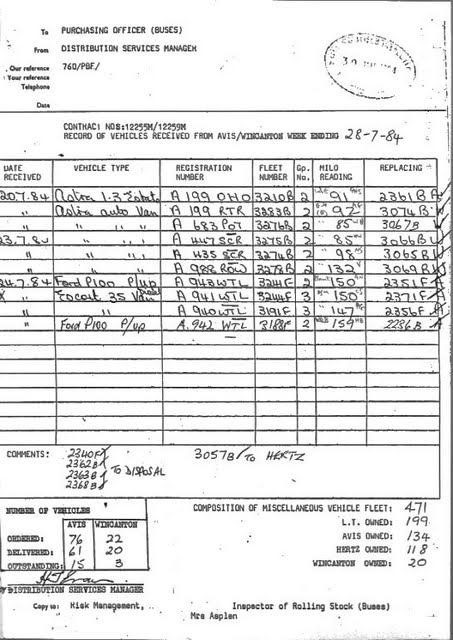 To PURCHASING OFFICER (BUSES)
From DISTRIBUTION SERVICES MANAGER
Our reference 760/PBF/
Your reference
Telephone
Date
CONTRACT NOS:12255M/12259M
RECORD OF VEHICLES RECEIVED FROM AVIS/WINCANTON WEEK ENDING 28-7-84
DATE RECEIVED VEHICLE TYPE REGISTRATION NUMBER FLEET NUMBER Gp. No. MILO READING REPLACING
20.7.84 Astra 1.3 Estate A 199 OHO 3210B 2 91 2361B A
" Astra auto Van A 199 RTR 3283B 2 92 3074B W
" " " " A 683 POT 3276B 2 85 3067B W
23.7.84 " " " A 447 SCR 3275B 2 85 3066B W
" " " " A 435 SCR 3274B 2 98 3065B W
" " " " A 988 ROW 3278B 2 132 3069B W
24.7.84 Ford P100 P/up A 943 WTL 3244F 2 150 2351F A
" Escort 35 Van A 941 WTL 3244F 3 150 2371F A
" " " A 940 WTL 3191F 3 147 2356F A
" Ford P100 P/up A. 942 WTL 3188F 2 159 2286B A
COMMENTS: 2340F
2362B
2363B
2368B
TO DISPOSAL
3057B TO HERTZ
NUMBER OF VEHICLES
AVIS WINCANTON
ORDERED: 76 22
DELIVERED: 61 20
OUTSTANDING: 15 3
COMPOSITION OF MISCELLANEOUS VEHICLE FLEET: 471
L.T. OWNED: 199
AVIS OWNED: 134
HERTZ OWNED: 118
WINCANTON OWNED: 20
DISTRIBUTION SERVICES MANAGER
Copy to: Risk Management, Inspector of Rolling Stock (Buses)
Mrs Asplen